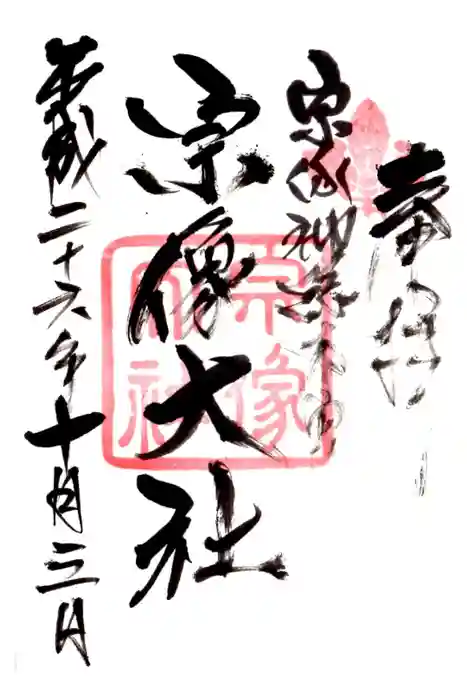 奉拝
宗像神
宗像大社
宗像大社
平成二十六年十月三日